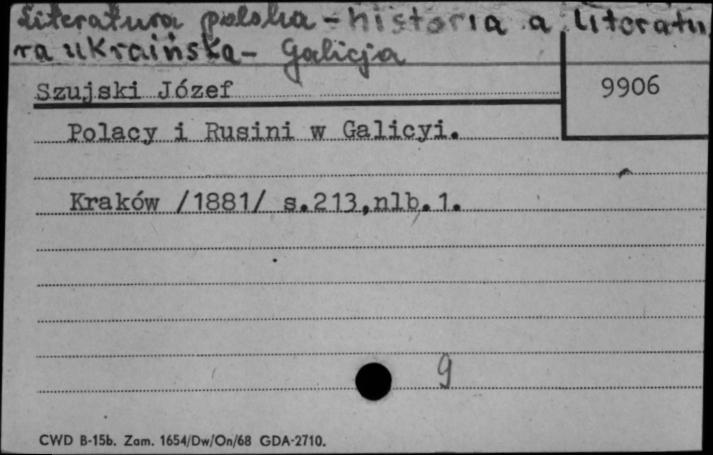 Literatura polska - historia a literatu
ra ukraińska - Galicja
Szujski Józef
9906
Polacy i Rusini w Galicyi.
Kraków /1881/ s.213,nlb.1.
9
CWD B-15b. Zam. 1654/Dw/On/68 GDA-2710.